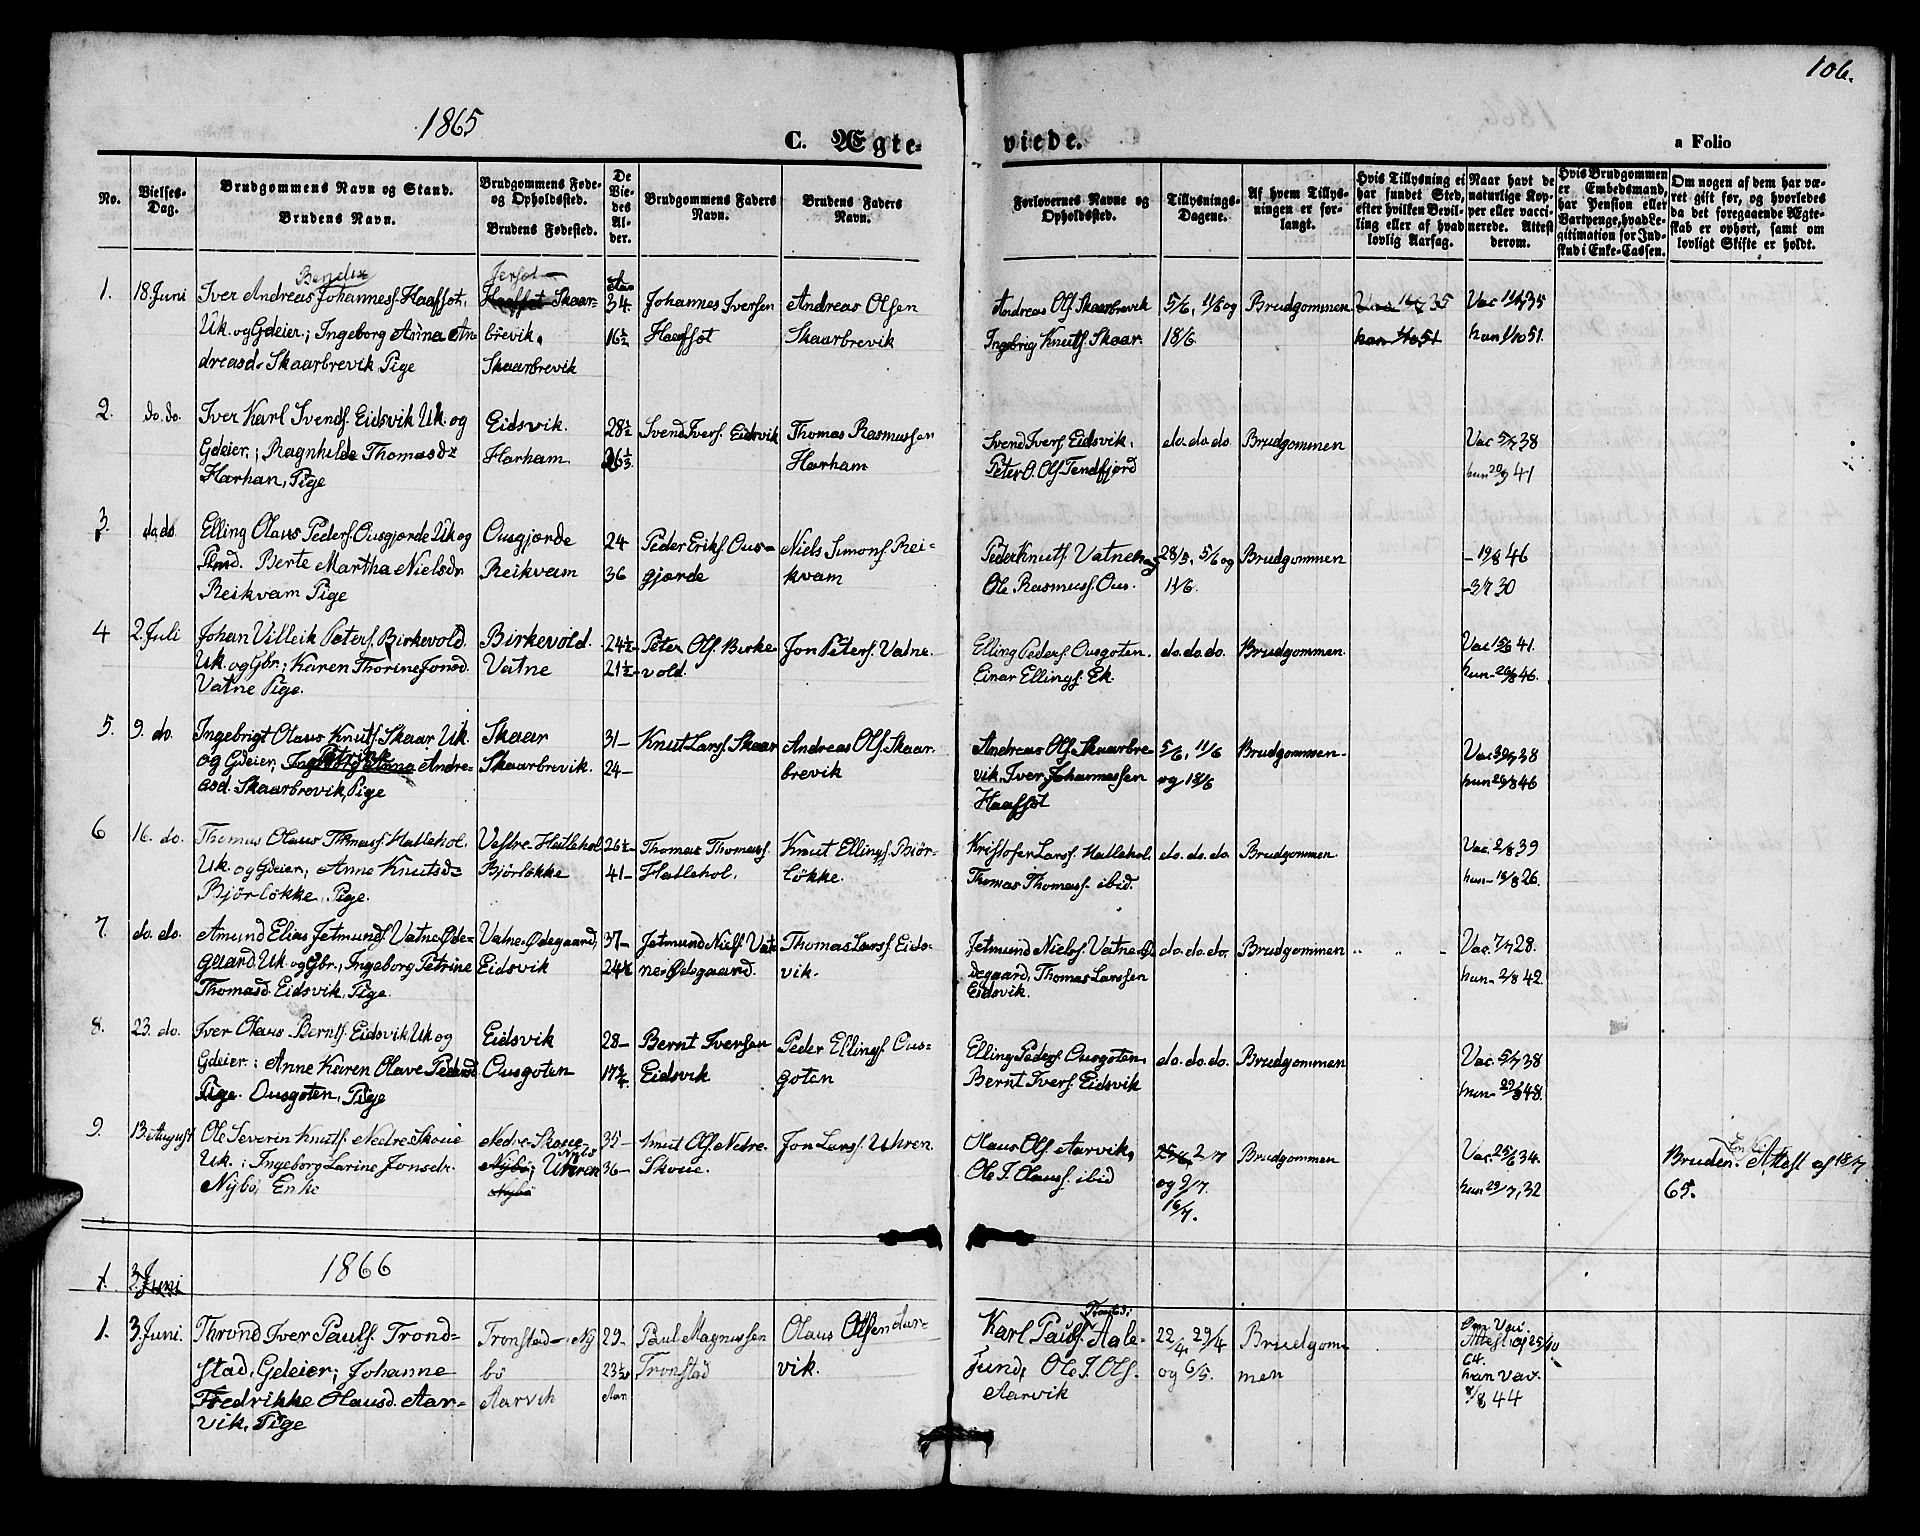 106.
1865
C. Ægte-
viede.
a Folio
No.
Vielses-
Dag.
Brudgommens Navn og Stand.
Brudens Navn.
Brudgommens Føde-
og Opholdsted.
Brudens Fødested.
De
Vie-
des
Al-
der.
Brudgommens Faders
Navn.
Brudens Faders
Navn.
Forlovernes Navne og
Opholdssted.
Tillysnings-
Dagene.
Af hvem Tillys-
ningen er for-
langt.
Hvis Tillysning ei
har fundet Sted,
efter hvilken Bevil-
ling eller af hvad
lovlig Aarsag.
Naar havt de
naturlige Kop-
per eller vacci-
nerede. Attest
derom.
Hvis Brudgommen
er Embedsmand,
har Pension eller
Vartpenge, hvad Le-
gitimation for Ind-
skud i Enke-Cassen.
Om nogen af dem har væ-
ret gift før, og hvorledes
da det foregaaende Ægte-
skab er ophørt, samt om
lovligt Skifte er holdt.
1. 18 Juni
Bendix
Iver Andreas Johannesf. Haafsot,
Uk. og Gdeier; Ingeborg Anna An-
dreasd. Skaarbrevik Pige
Haafsot Skaar-
brevik.
Skaarbrevik
34
16½
Johannes Iversen
Haafsot
Andreas Olsen
Skaarbrevik
Andreas Olf. Skaarbrevik
Ingebrig Knutf. Skaar
5/6, 11/6 og
18/6.
Brudgommen
Vac 11/7 35
hun 1/10 51.
2. do. do.
Iver Karl Svendf. Eidsvik Uk. og
Gdeier; Ragnhilde Thomasd.
Harhan, Pige
Eidsvik.
Harham
28½
26⅓
Svend Iverf. Eidsvik
Thomas Rasmussen
Harham
Svend Iverf. Eidsvik,
Peter O. Olf. Tendfjord
do. do. do.
Brudgommen
Vac 5/7 38
hun 20/9 41
3. do. do.
Elling Olaus Pederf. Ousgjærde Uk og
Berte Martha Nielsdr
Reikvam Pige
Ousgjærde
Reikvam
24
36
Peder Erikf. Ous-
gjærde
Niels Simonf. Rei-
kvam
Peder Knutf. Vatne og
Ole Rasmusf. Ous.
28/5, 5/6 og
11/6.
Brudgommen
- 19/8 46
- 3/7 30
4 2. Juli
Johan Villeik Petersf. Birkevold.
Uk. og Gbr.; Karen Thorine Jonsd.
Vatne Pige.
Birkevold.
Vatne
24½
21½
Peter Olf. Birke
vold.
Jon Petersf. Vatne.
Elling Pedersf. Ousgoten.
Einar Ellingf. Ek.
do. do. do.
Brudgommen
Vac 15/6 41.
hun 20/8 46.
5. 9. do.
Ingebrigt Olaus Knutf. Skaar Uk.
Petrine
og Gdeier, Ingeborg Anna Andre-
asd. Skaarbrevik, Pige
Skaar
Skaarbrevik.
31-
24-
Knut Larsf. Skaar
Andreas Olf. Skaar
brevik
Andreas Olf. Skaarbre-
vik, Iver Johannessen
Haafsot
5/6, 11/6
og 18/6
Brudgommen.
Vac 30/7 38
hun 20/8 46
6 16. do.
Thomas Olaus Thomasf. Hatlehol.
Uk. og Gdeier; Anne Knutsd.
Bjørløkke, Pige.
Vestre-Hatlehol
Bjørløkke
26½
41-
Thomas Thomasf.
Hatlehol.
Knut Ellingf. Bjør-
løkke.
Kristofer Larsf. Hatlehol.
Thomas Thomasf. ibid.
do. do. do.
Brudgommen
Vac 2/8 39
hun 18/8 26.
7. do. do.
Amund Elias Jetmundf. Vatne Øde-
gaard. Uk. og Gbr., Ingeborg Petrine
Thomasd. Eidsvik, Pige.
Vatne-Ødegaard,
Eidsvik
37-
24½
Jetmund Nielsf. Vat-
ne Ødegaard.
Thomas Larsf. Eids-
vik.
Jetmund Nielsf. Vatne Ø-
degaard, Thomas Larssen
Eidsvik.
do. do. do.
Brudgommen
Vac. 7/7 28.
hun 2/8 42.
8. 23. do.
Iver Olaus Berntf. Eidsvik, Uk og
Gdeier: Anne Karen Olave Pedersd
Pige. Ousgoten, Pige
Eidsvik
Ousgoten
28-
17¾
Bernt Iversen
Eidsvik
Peder Ellingf. Ous-
goten
Elling Pedersf. Ousgoten
Bernt Iverf. Eidsvik
do. do. do.
Brudgommen
Vac 5/7 38
hun 29/8 48.
9. 13. August
Ole Severin Knutf. Nedre Skoue
Uk.; Ingeborg Larine Jonsdr.
Nybø, Enke
Nedre-Skoue
Nybø, Uhren
Nybø
35-
36-
Knut Olf. Nedre
Skoue.
Jon Larsf. Uhren.
Olaus Olf. Aarvik,
Ole J. Olausf. ibid
25/6, 2/7
og 9/7.
16/7.
Brudgommen
Vac. 25/6 34.
hun 29/7, 32
Bruden Enke Attest af 18/7
65.
1866
1. 3. Juni
1. 3. Juni.
Thrond Iver Paulf. Trond-
stad, Gdeier; Johanne
Fredrikke Olausd. Aar-
vik, Pige
Tronstad- Ny
bø
Aarvik
29-
23½
Aar
Paul Magnussen
Tronstad
Olaus Olsen Aar-
vik.
Tronstad,
Karl Paulf. Aale-
sund, Ole J. Olf.
Aarvik
22/4, 29/4
og 6/5.
Brudgom
men
Om Vac.
Attest af 25/10
64.
han vac.
8/8 44